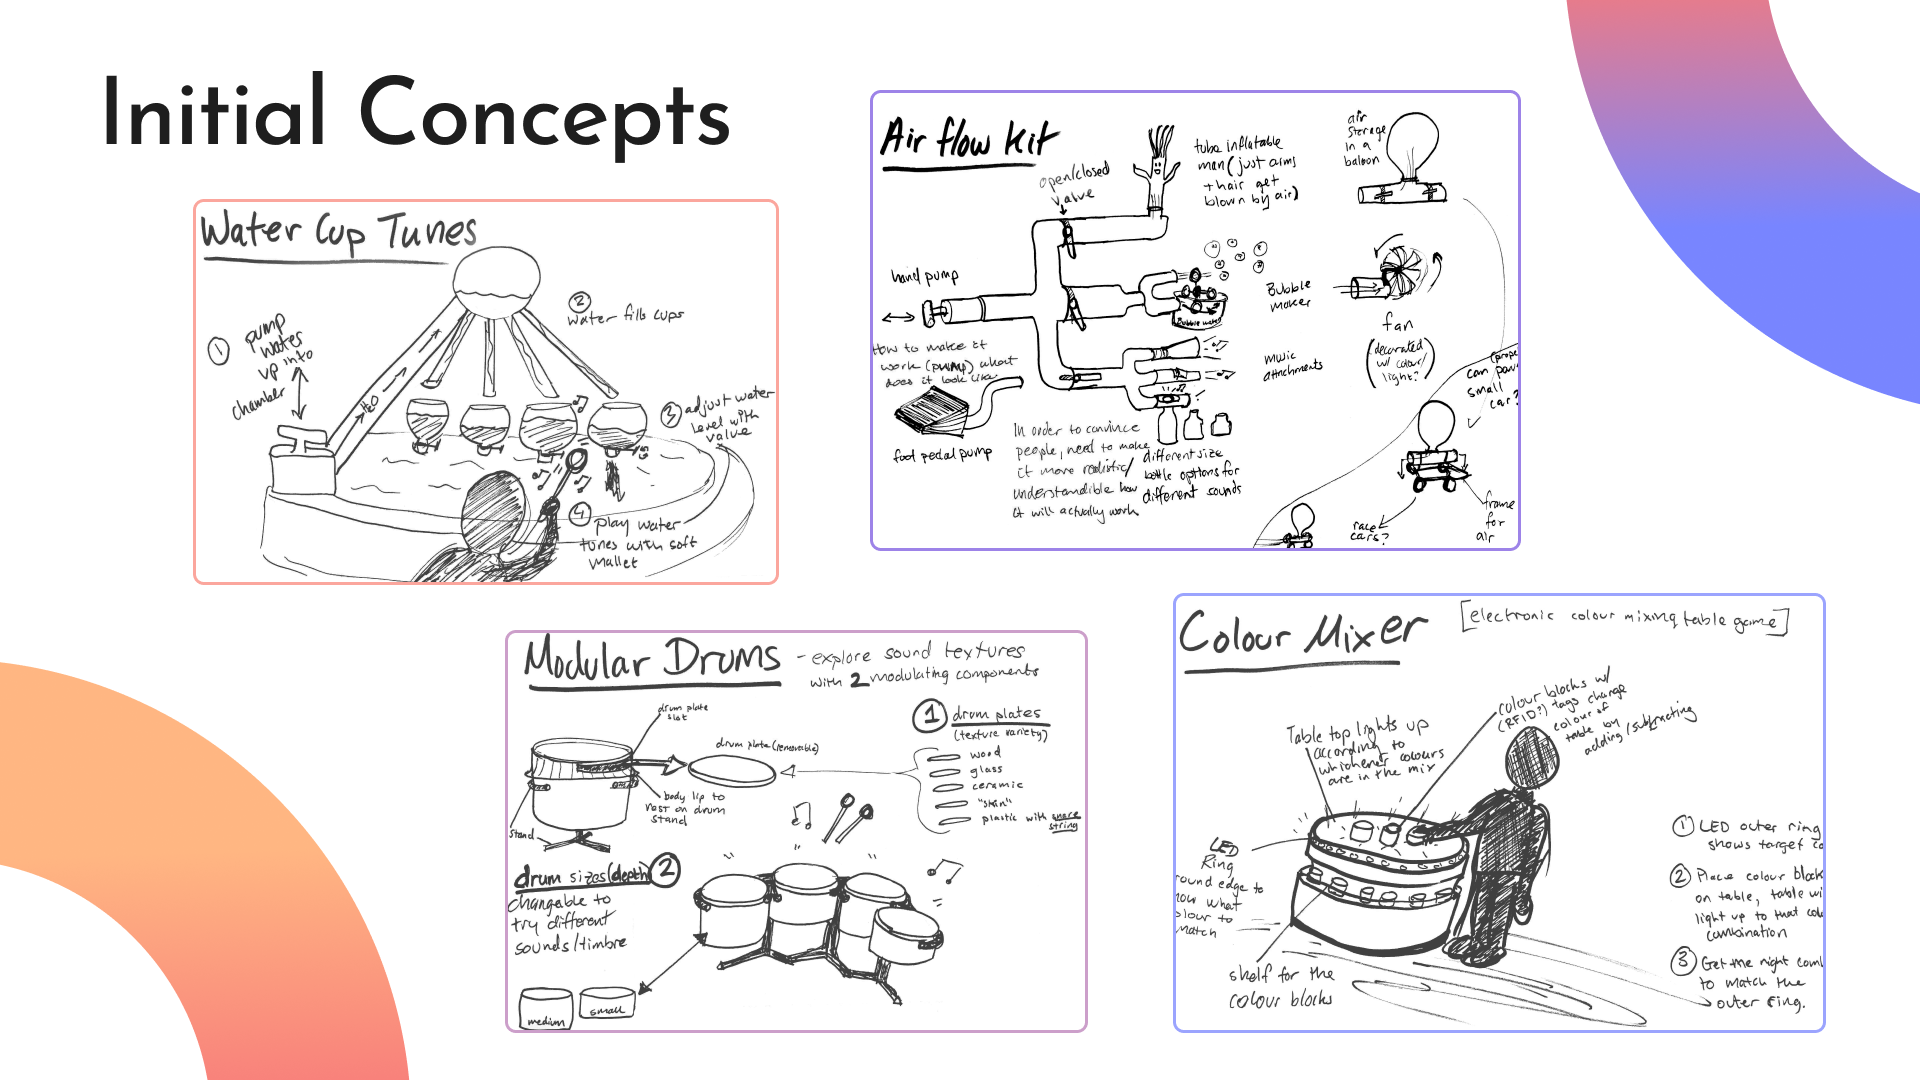 Initial Concepts
Water Cup Tunes
1 pump
water
up into
chamber
H2O
2
water fills cups
3 adjust water
level with
valve
4 play water
tunes with soft
mallet
Air flow kit
open/closed
valve
tube inflatable
man (just arms
+ hair get
blown by air)
air
storage
in a
baloon
hand pump
Bubble
maker
Bubble water
fan
(decorated
w/ colour/
light?)
How to make it
work (pump) what
does it look like
music
attachments
foot pedal pump
In order to convince
people, need to make
it more realistic/
understandible how
it will actually work
different size
bottle options for
different sounds
can pow
small
car?
race
cars?
frame
for
air
Modular Drums
- explore sound textures
with 2 modulating components
drum plate
slot
drum plate (removable)
body lip to
rest on drum
stand
stand
1 drum plates
(texture variety)
wood
glass
ceramic
"skin"
plastic with snare
string
drum sizes (depth) 2
changable to
try different
sounds/timbre
medium
small
Colour Mixer
[electronic colour mixing table game]
Table top lights up
according to
whichever colours
are in the mix
colour blocks w/
(RFID?) tags change
colour of
table by
adding/subtracting
LED
Ring
round edge to
how what
olour to
match
shelf for the
colour blocks
1 LED outer ring
shows target co
2 Place colour block
on table, table wi
light up to that col
combination
3 Get the right com
to match the
outer ring.